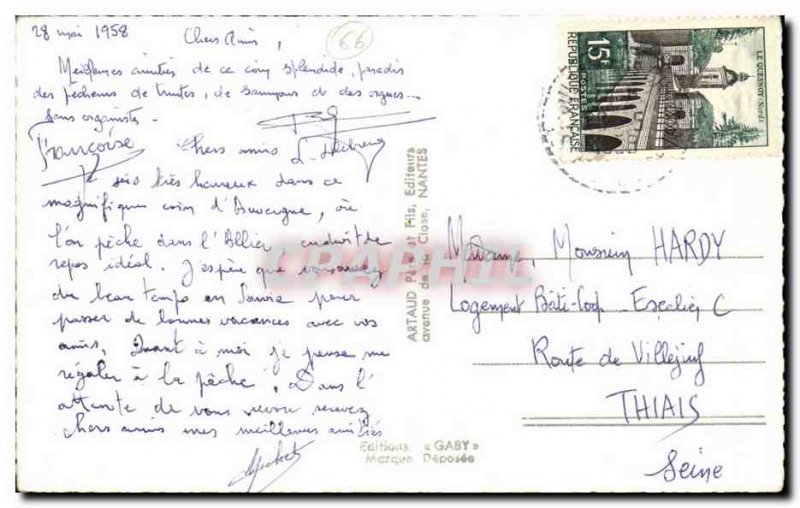 28 mai 1958
66
Chers Amis,
Meilleures amitiés de ce coin splendide, paradis
des pêcheurs de truites, de saumons et des orgues...
sans organistes.
Françoise
Chers amis
Je suis très heureux dans ce
magnifique coin d'Auvergne, où
l'on pêche dans l'Allier, endroit de
repos idéal. J'espère que vous avez
du beau temps en Savoie pour
passer de bonnes vacances avec vos
amis. Quant à moi je pense me
régaler à la pêche. Dans l'
attente de vous revoir recevez
chers amis mes meilleures amitiés
ARTAUD Père et Fils, Editeurs
avenue de la Close, NANTES
Editions « GABY »
Marque Déposée
15F
REPUBLIQUE FRANÇAISE
POSTES
LE QUESNOY (Nord)
Madame, Monsieur HARDY
Logement Bâti-Coop - Escalier C
Route de Villejuif
THIAIS
Seine
CPAPHIL